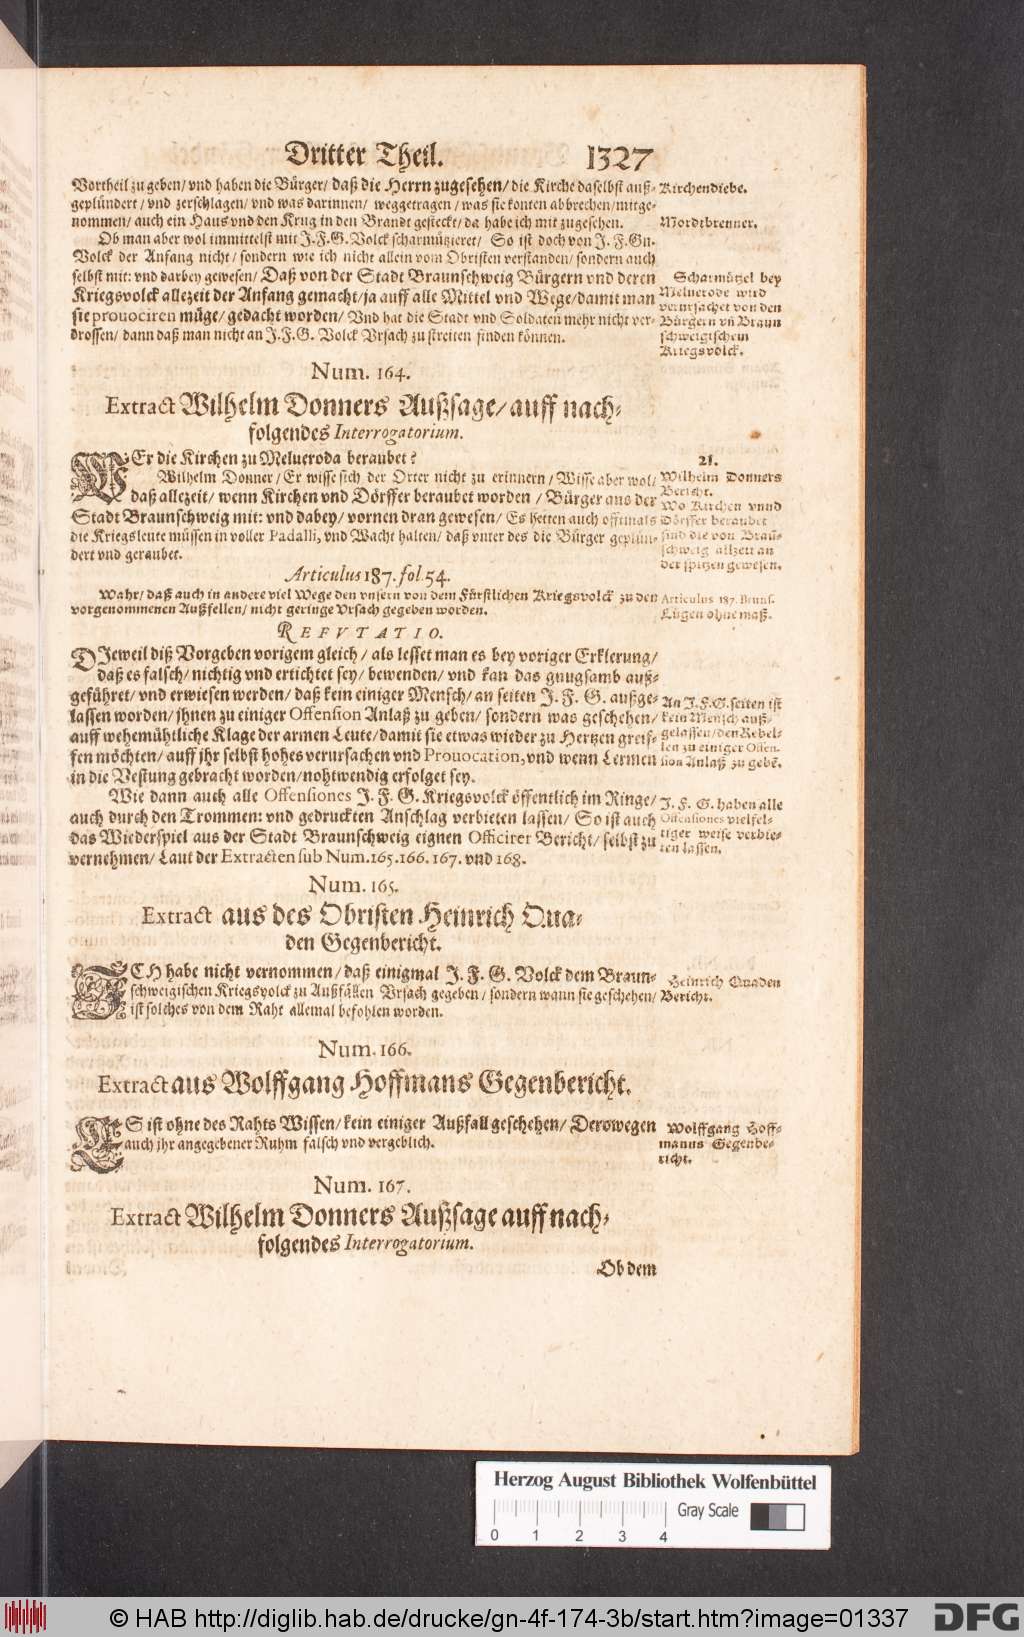 Dritter Theil. 1327
Vortheil zu geben/ vnd haben die Bürger/ daß die Herrn zugesehen/ die Kirche daselbst auß-
geplündert/ vnd zerschlagen/ vnd was darinnen/ weggetragen/ was sie konten abbrechen/mitge-
nommen/ auch ein Haus vnd den Krug in den Brandt gesteckt/ da habe ich mit zugesehen.
Kirchendiebe.
Mordtbrenner.
Ob man aber wol immittelst mit J.F.G. Volck scharmützieret/ So ist doch von J. F.Gn.
Volck der Anfang nicht/ sondern wie ich nicht allein vom Obristen verstanden/ sondern auch
selbst mit: vnd darbey gewesen/ Daß von der Stadt Braunschweig Bürgern vnd deren
Kriegsvolck allezeit der Anfang gemacht/ja auff alle Mittel vnd Wege/damit man
sie provociren müge/ gedacht worden/ Vnd hat die Stadt vnd Soldaten mehr nicht ver-
drossen/ dann daß man nicht an J.F.G. Volck Vrsach zu streiten finden können.
Scharmützel bey
Melverode wird
verursachet von den
Bürgern vñ Braun
schweigischem
Kriegsvolck.
Num. 164.
Extract Wilhelm Donners Außsage/ auff nach-
folgendes Interrogatorium.
WEr die Kirchen zu Melveroda beraubet?
Wilhelm Donner/ Er wisse sich der Orter nicht zu erinnern/ Wisse aber wol/
daß allezeit/ wenn Kirchen vnd Dörffer beraubet worden/ Bürger aus der
Stadt Braunschweig mit: vnd dabey/ vornen dran gewesen/ Es hetten auch offtmals
die Kriegsleute müssen in voller Padalli, vnd Wacht halten/ daß vnter des die Bürger geplün-
dert vnd geraubet.
21.
Wilhelm Donners
Bericht.
Wo Kirchen vnnd
Dörffer beraubet
sind die von Braũ-
schweig allzeit an
der spitzen gewesen.
Articulus 187. fol. 54.
Wahr/ daß auch in andere viel Wege den vnsern von dem Fürstlichen Kriegsvolck zu den
vorgenommenen Außfellen/ nicht geringe Vrsach gegeben worden.
Articulus 187. Bruns.
Lügen ohne maß.
REFVTATIO.
DJeweil diß Vorgeben vorigem gleich/ als lesset man es bey voriger Erklerung/
daß es falsch/ nichtig vnd ertichtet sey/ bewenden/ vnd kan das gnugsamb auß-
geführet/ vnd erwiesen werden/ daß kein einiger Mensch/ an seiten J. F. G. außge-
lassen worden/ jhnen zu einiger Offension Anlaß zu geben/ sondern was geschehen/
auff wehemühtliche Klage der armen Leute/ damit sie etwas wieder zu Hertzen greif-
fen möchten/ auff jhr selbst hohes verursachen vnd Provocation, vnd wenn Lermen
in die Vestung gebracht worden/ nohtwendig erfolget sey.
An J.F.G. seiten ist
kein Mensch auß-
gelassen/den Rebel-
len zu einiger Offen-
sion Anlaß zu gebẽ.
Wie dann auch alle Offensiones J. F. G. Kriegsvolck öffentlich im Ringe/
auch durch den Trommen: vnd gedruckten Anschlag verbieten lassen/ So ist auch
das Wiederspiel aus der Stadt Braunschweig eignen Officirer Bericht/ selbst zu
vernehmen/ Laut der Extracten sub Num. 165. 166. 167. vnd 168.
J. F. G. haben alle
Offensiones vielfel-
tiger weise verbie-
ten lassen.
Num. 165.
Extract aus des Obristen Heinrich Qua-
den Gegenbericht.
JCH habe nicht vernommen/ daß einigmal J. F. G. Volck dem Braun-
schweigischen Kriegsvolck zu Außfällen Vrsach gegeben/ sondern wann sie geschehen/
ist solches von dem Raht allemal befohlen worden.
Heinrich Quaden
Bericht.
Num. 166.
Extract aus Wolffgang Hoffmans Gegenbericht.
ES ist ohne des Rahts Wissen/ kein einiger Außfall geschehen/ Derowegen
auch jhr angegebener Ruhm falsch vnd vergeblich.
Wolffgang Hoff-
manns Gegenbe-
richt.
Num. 167.
Extract Wilhelm Donners Außsage auff nach-
folgendes Interrogatorium.
Ob dem
Herzog August Bibliothek Wolfenbüttel
Gray Scale
0 1 2 3 4
© HAB http://diglib.hab.de/drucke/gn-4f-174-3b/start.htm?image=01337
DFG